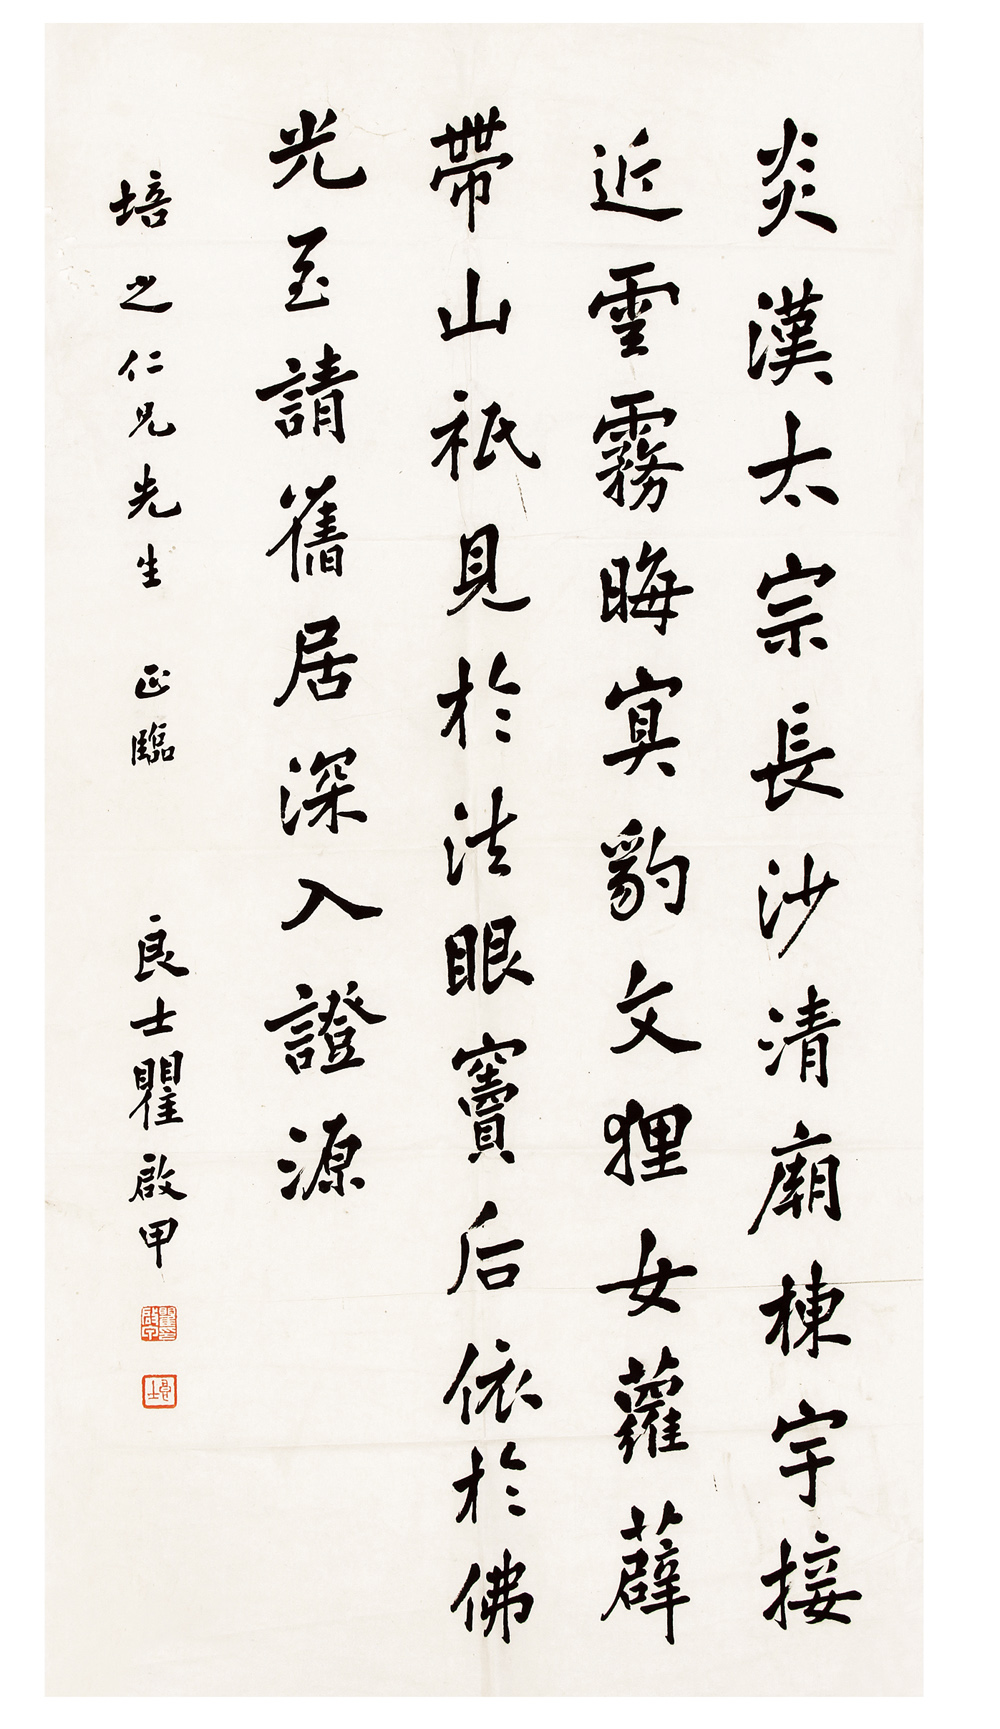 炎漢太宗長沙清廟棟宇接
近雲霧晦冥豹文狸女蘿薜
帶山祇見於法眼竇后依於佛
光至請舊居深入證源
培之仁兄先生 正臨
良士瞿啟甲
瞿啟甲
良士